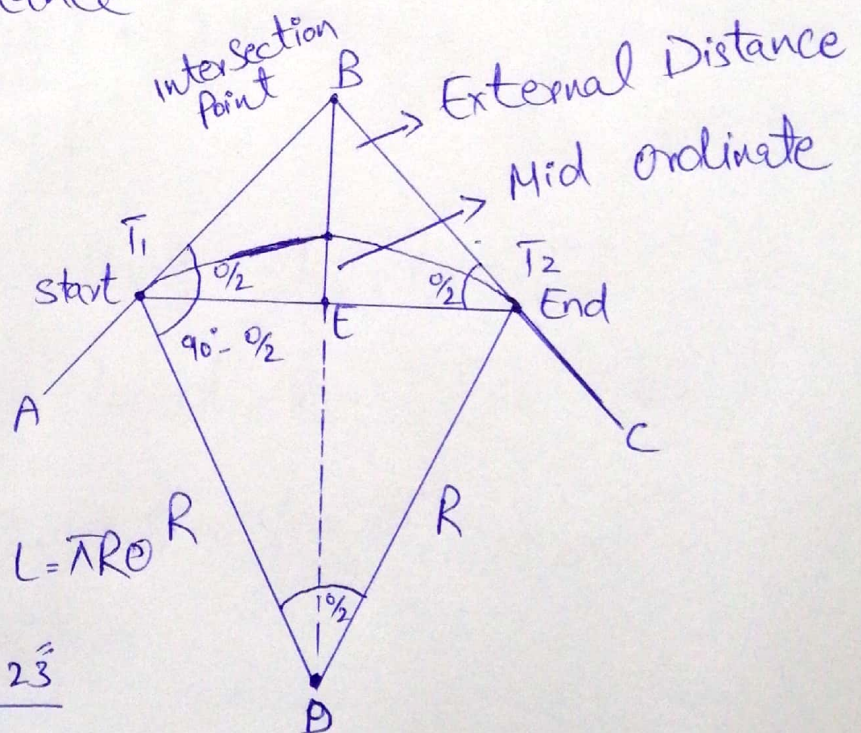 Intersection
Point
B
External Distance
Mid ordinate
T1
Start
θ/2
θ/2
T2
End
90°- θ/2
E
A
C
R
R
L=πRθ
θ/2
23